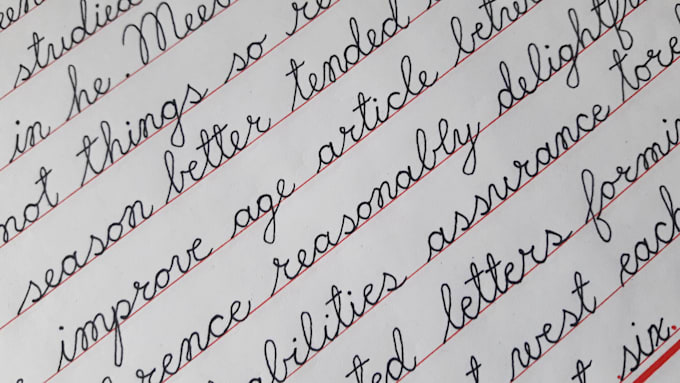 een
studied
in he. Meet
not things so re
season better tended
improve age article betwe
rence reasonably delightf
abilities assurance tore
ted letters formi
t west each
t six.